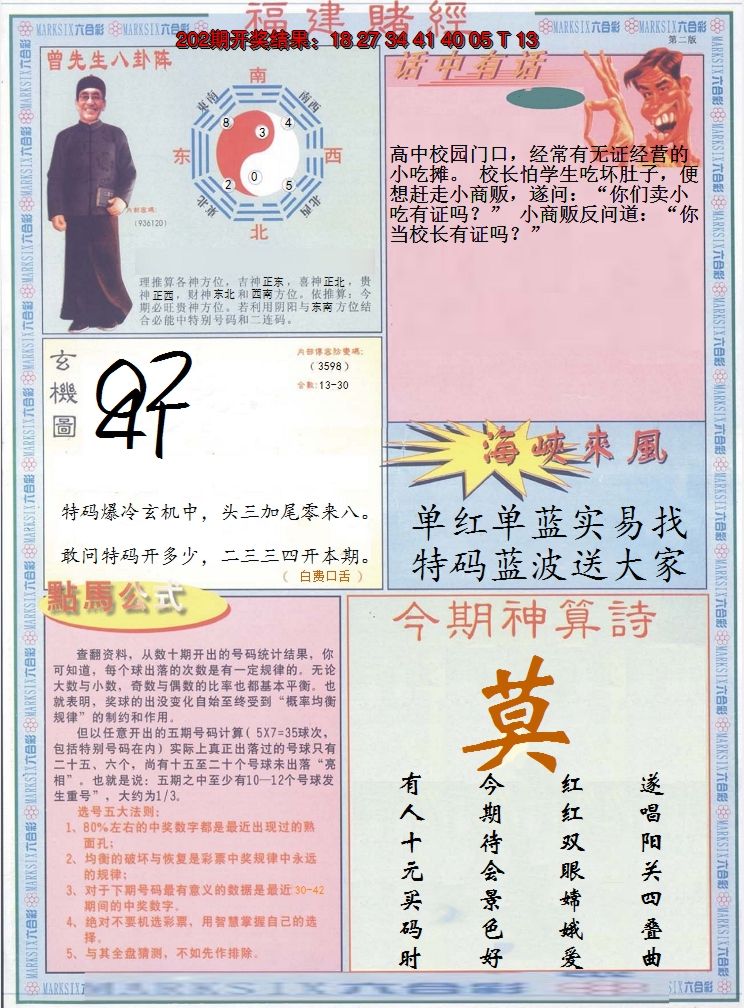 福建賭經
202期开奖结果：18 27 34 41 40 05 T 13
第二版
MARKSIX六合彩
曾先生八卦阵
南
东南
西南
8
4
3
东
西
2
0
5
東北
西北
北
内部密碼：
（936120）
理推算各神方位，吉神正东，喜神正北，贵
神正西，财神东北和西南方位。依推算：今
期必旺贵神方位。若利用阴阳与东南方位结
合必能中特别号码和二连码。
话中有话
高中校园门口，经常有无证经营的
小吃摊。 校长怕学生吃坏肚子，便
想赶走小商贩，遂问：“你们卖小
吃有证吗？” 小商贩反问道：“你
当校长有证吗？”
玄機圖
（3598）
合数:13-30
特码爆冷玄机中，头三加尾零来八。
敢问特码开多少，二三三四开本期。
（ 白费口舌 ）
海峡來風
单红单蓝实易找
特码蓝波送大家
點馬公式
查翻资料，从数十期开出的号码统计结果，你
可知道，每个球出落的次数是有一定规律的。无论
大数与小数，奇数与偶数的比率也都基本平衡。也
就表明，奖球的出没变化自始至终受到“概率均衡
规律”的制约和作用。
但以任意开出的五期号码计算( 5X7=35球次，
包括特别号码在内）实际上真正出落过的号球只有
二十五、六个，尚有十五至二十个号球未出落“亮
相”。也就是说：五期之中至少有10—12个号球发
生重号”，大约为1/3。
选号五大法则：
1、80%左右的中奖数字都是最近出现过的熟
面孔；
2、均衡的破坏与恢复是彩票中奖规律中永远
的规律；
3、对于下期号码最有意义的数据是最近30-42
期间的中奖数字。
4、绝对不要机选彩票，用智慧掌握自己的选
择。
5、与其全盘猜测，不如先作排除。
今期神算詩
莫
有人十元买码时
今期待会景色好
红红双眼嫦娥爱
遂唱阳关四叠曲